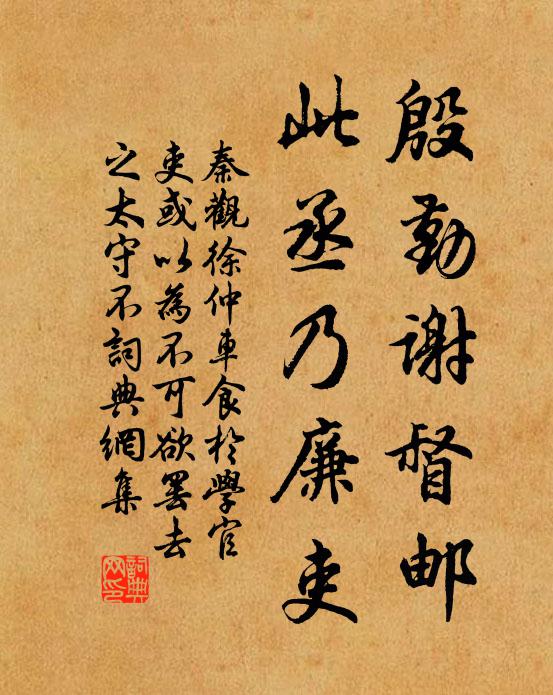 殷勤谢督邮
此丞乃廉吏
秦觀徐仲車食於學官
吏或以為不可欲罢去
之太守不詞典網集
詞典
网印